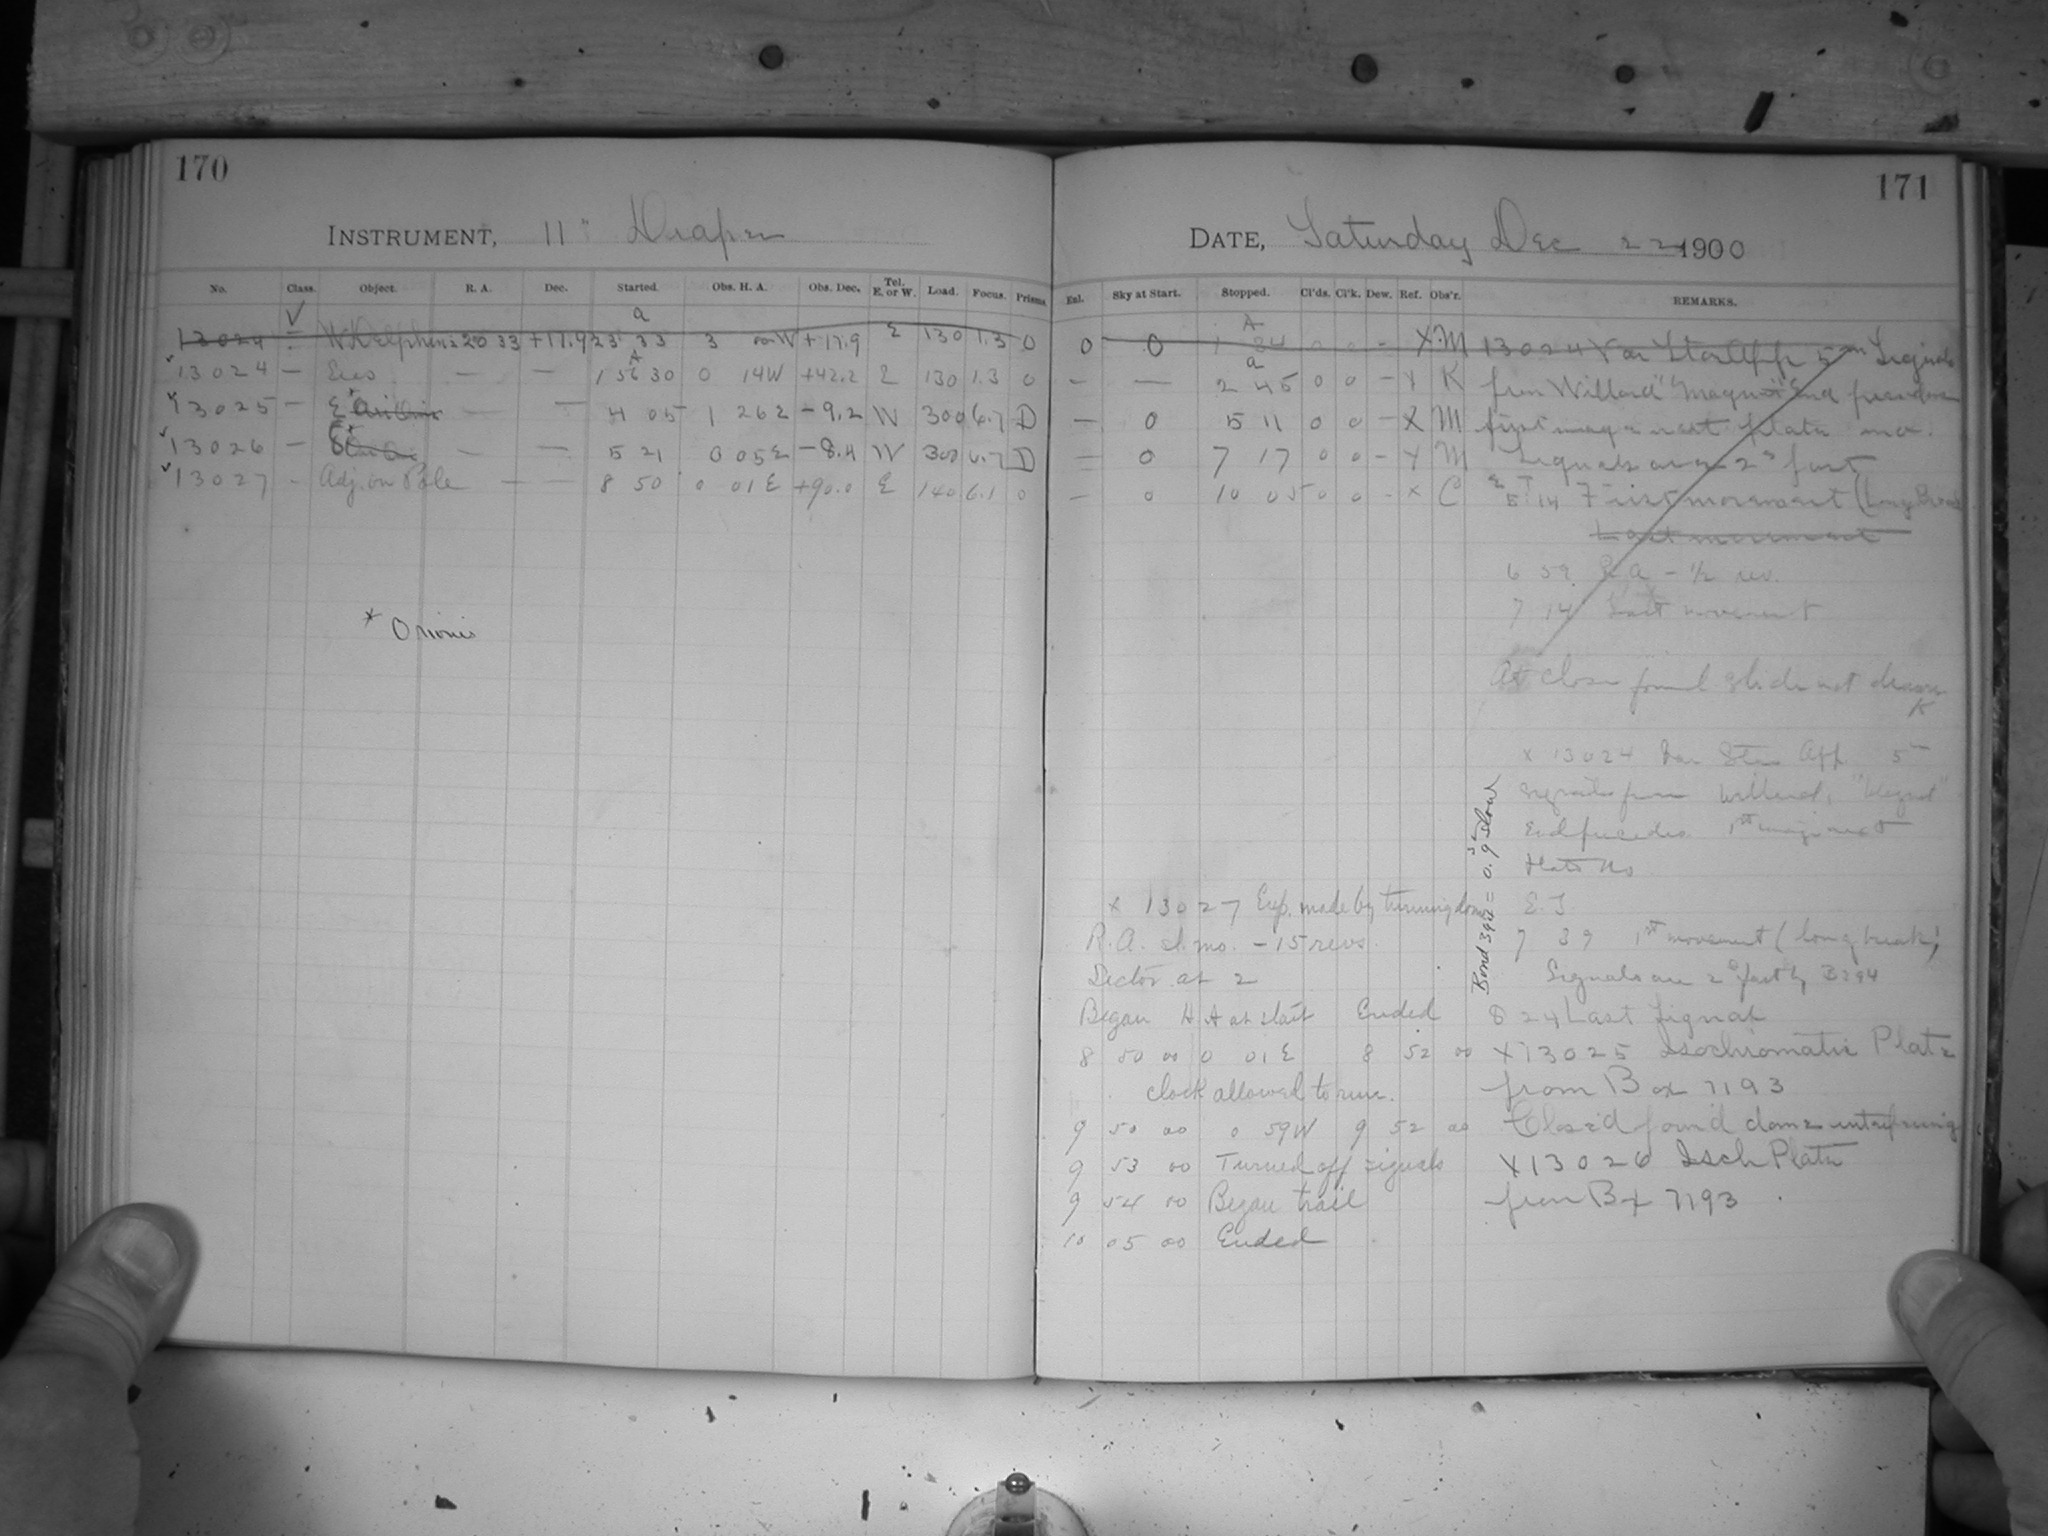 170
INSTRUMENT, 11" Draper
No. Class. Object. R. A. Dec. Started. Obs. H. A. Obs. Dec. Tel. E. or W. Load. Focus. Prisms.
V a
13024 - W Delphini 20 33 +17.9 23 33 3 W +17.9 E 130 1.3 0
A
13024 — Eros — — 1 56 30 0 14W +42.2 E 130 1.3 0
13025 — E* — — 4 05 1 26 E -9.2 W 300 6.7 D
13026 — — — 5 21 0 05 E -8.4 W 300 6.7 D
13027 - Adj. on Pole — — 8 50 0 01 E +90.0 E 140 6.1 0
* Orionis
171
DATE, Saturday Dec 22 1900
Enl. Sky at Start. Stopped. Cl'ds. Cl'k. Dew. Ref. Obs'r. REMARKS.
A
0 0 1 0 0 - X M 13024 Var Star App 5m Signals
a
— — 2 45 0 0 - X K from Willard "Magnet" End precedes
— 0 5 11 0 0 - X M first image next plate no.
— 0 7 17 0 0 - X M Signals are 2s fast
— 0 10 05 0 0 - X C E T 5 14 First movement (Long Break
Last movement
6 59 R A - 1/2 rev.
7 14 Last movement
At close found slide not drawn
K
X 13024 Var Star App. 5m
Signals from Willard, "Magnet"
End precedes 1st image next
Plate No
E. T
7 39 1st movement (long break)
Signals are 2s fast by B394
8 24 Last signal
X 13025 Isochromatic Plate
from Box 7193
Closed found dome interfering
X 13026 Isoch Plate
from Bx 7193
Bond 394 = 0.9s slow
X 13027 Exp. made by turning down
R. A. sl. mo. - 15 revs.
Sector at 2
Began H. A at start Ended
8 50 00 0 01 E 8 52 00
clock allowed to run.
9 50 00 0 59W 9 52 00
9 53 00 Turned off signals
9 54 00 Began trail
10 05 00 Ended